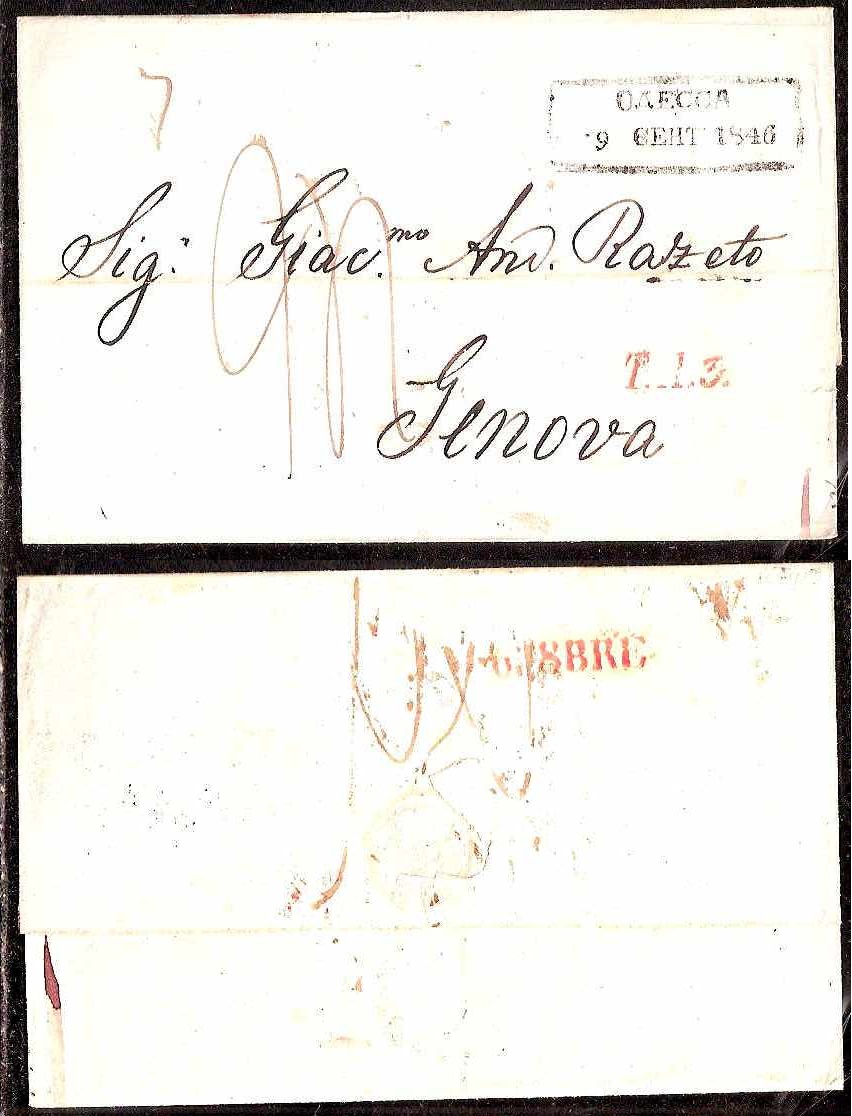 7
ОДЕССА
9 СЕНТ 1846
Sig.r Giac.mo And. Razeto
T. 1. 3.
Genova
6. 8BRE